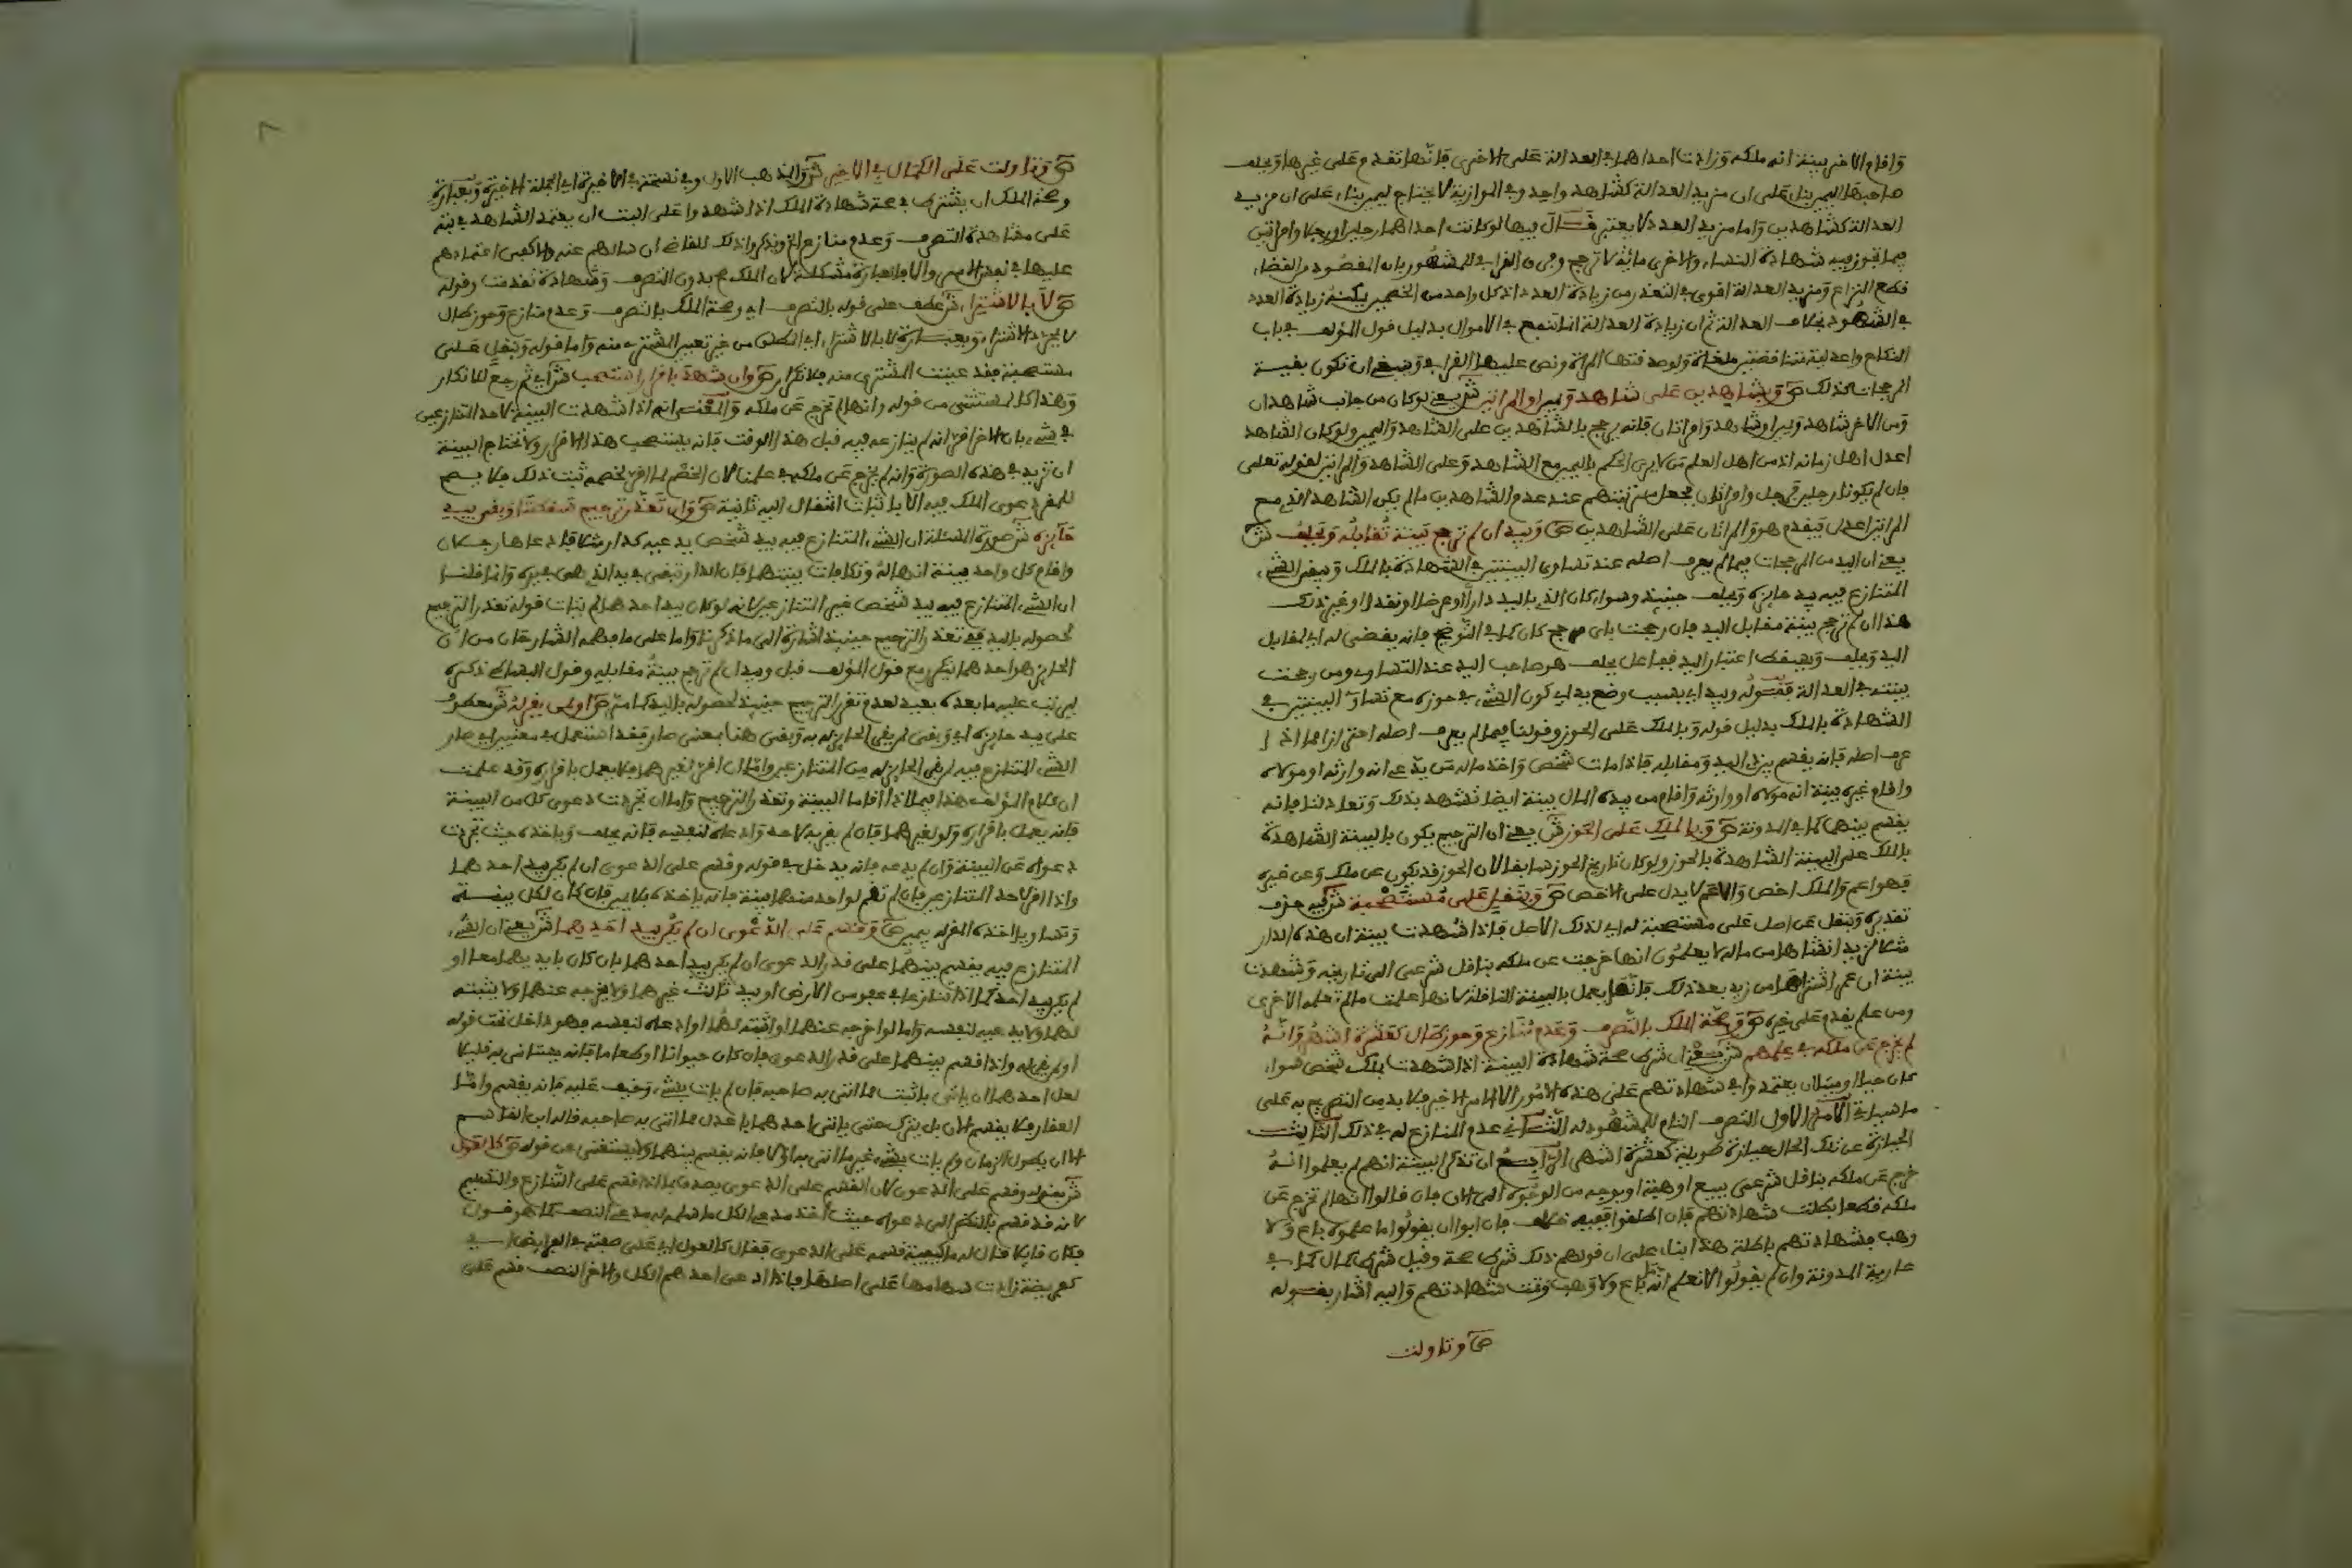 وأقام الآخر بينة أنه ملكه وزادت إحداهما في العدالة على الأخرى فإنها تقدم على غيرها ويحلف
صاحبها اليمين بناء على أن مزيد العدالة كشاهد واحد وفي الموازية لا يحتاج ليمين بناء على أن مزيد
العدالة كشاهدين وأما مزيد العدد فلا يعتبر قال فيها لو كانت إحداهما رجلين أو رجلا وامرأتين
فيما تجوز فيه شهادة النساء والأخرى مائة لا ترجح وفرق القرافي للمشهور بأن المقصود من القضاء
قطع النزاع ومزيد العدالة أقوى في التعذر من زيادة العدد إذ كل واحد من الخصمين يمكنه زيادة العدد
في الشهود بخلاف العدالة ثم إن زيادة العدالة إنما تنفع في الأموال بدليل قول المؤلف في باب
النكاح وأعدلية متناقضتين ملغاة ولو صدقتها المرأة ونص عليها القرافي وينبغي أن تكون بقية
المرجحات كذلك ص وبشاهدين على شاهد ويمين أو امرأتين ش يعني لو كان من جانب شاهدان
ومن الآخر شاهد ويمين أو شاهد وامرأتان فإنه يرجح بالشاهدين على الشاهد واليمين ولو كان الشاهد
أعدل أهل زمانه إذ من أهل العلم من لا يرى الحكم باليمين مع الشاهد وعلى الشاهد والمرأتين لقوله تعلى
فإن لم يكونا رجلين فرجل وامرأتان فجعل مرتبتهم عند عدم الشاهدين ما لم يكن الشاهد الذي مع
المرأتين أعدل فيقدم هو والمرأتان على الشاهدين ص وبيد إن لم ترجح بينة مقابله ويحلف ش
يعني أن اليد من المرجحات فيما لم يعرف أصله عند تساوي البينتين في الشهادة بالملك ويبقى الشيء
المتنازع فيه بيد حائزه ويحلف حينئذ وسواء كان الذي باليد دارا أو عرضا أو نقدا أو غير ذلك
هذا إن لم ترجح بينة مقابل اليد فإن رجحت بأي مرجح كان كما في التوضيح فإنه يقضى له أي لمقابل
اليد ويحلف ويسقط اعتبار اليد ففاعل يحلف هو صاحب اليد عند التساوي ومن رجحت
بينته في العدالة فقوله وبيد أي بسبب وضع يد أي كون الشيء في حوزه مع تساو البينتين في
الشهادة بالملك بدليل قوله وبالملك على الحوز وقولنا فيما لم يعرف أصله احترازا مما إذا
عرف أصله فإنه يقسم بين ذي اليد ومقابله فإذا مات شخص وأخذ ماله من يدعي أنه وارثه أو مولاه
وأقام غيره بينة أنه مولاه أو وارثه وأقام من بيده المال بينة أيضا تشهد بذلك وتعادلتا فإنه
يقسم بينهما كما في المدونة ص وبالملك على الحوز ش يعني أن الترجيح يكون بالبينة الشاهدة
بالملك على البينة الشاهدة بالحوز ولو كان تاريخ الحوز سابقا لأن الحوز قد يكون عن ملك وعن غيره
فهو أعم والملك أخص والأعم لا يدل على الأخص ص وبنقل على مستصحبة ش فيه حذف
تقديره وبنقل عن أصل على مستصحبة له أي لذلك الأصل فإذا شهدت بينة أن هذه الدار
مثلا لزيد أنشأها من ماله لا يعلمون أنها خرجت عن ملكه بناقل شرعي إلى تاريخه وشهدت
بينة أن عمرا اشتراها من زيد بعد ذلك فإنها يعمل بالبينة الناقلة لأنها علمت ما لم تعلم الأخرى
ومن علم يقدم على غيره ص وصحة الملك بالتصرف وعدم منازع وحوز طال كعشرة أشهر وأنه
لم يخرج عن ملكه في علمهم ش يعني أن شرط صحة شهادة البينة إذا شهدت بملك شخص سواء
كان حيا أو ميتا أن يعتمدوا في شهادتهم على هذه الأمور إلا الأمر الأخير فلا بد من التصريح به على
ما سيأتي الأمر الأول التصرف التام للمشهود له الثاني عدم المنازع له في ذلك الثالث
الحيازة عن تلك الحال حيازة طويلة كعشرة أشهر الرابع أن تذكر البينة أنهم لم يعلموا أنه
خرج عن ملكه بناقل شرعي ببيع أو هبة أو بوجه من الوجوه إلى الآن فإن قالوا أنها لم تخرج عن
ملكه قطعا بطلت شهادتهم فإن أطلقوا ففيه خلاف فإن أبوا أن يقولوا ما علموه باع ولا
وهب فشهادتهم باطلة هذا بناء على أن قولهم ذلك شرط صحة وقيل شرط كمال كما في
عارية المدونة وإن لم يقولوا لا نعلم أنه باع ولا وهب وتمت شهادتهم وإليه أشار بقوله
ص وتاولت
ص وتاولت على الكمال في الأخير ش والمذهب الأول وفي نسخة في الأخيرة أي الجملة الأخيرة وبعبارة
وصحة الملك أن يشترط في صحة شهادة الملك إذا شهدوا على البت أن يعتمد الشاهد في بته
على مشاهدة التصرف وعدم منازع الخ ويذكروا ذلك للقاضي إن سألهم عنه ولا يكفي اعتمادهم
عليها في نفس الأمر وإلا فالعبارة مشكلة لأن الملك يصح بدون التصرف وشهادة تقدمت وقوله
ص لا بالاشتراء ش عطف على قوله بالتصرف أي وصحة الملك بالتصرف وعدم منازع وحوز طال
لا بمجرد الاشتراء وبعبارة لا بالاشتراء أي المطلق من غير تعيين المشترى منه وأما قوله وبنقل على
مستصحبة فقد عينت المشترى منه فلا تكرار ص وإن شهد بإقرار استصحب ش أي ثم رجع للإنكار
وهذا كالمستثنى من قوله وأنها لم تخرج عن ملكه والمعنى أنه إذا شهدت البينة لأحد المتنازعين
في شيء بأن الآخر أقر أنه لم ينازعه فيه قبل هذا الوقت فإنه يستصحب هذا الإقرار ولا تحتاج البينة
أن تزيد في هذه الصورة وأنه لم يخرج عن ملكه في علمنا لأن الخصم لما أقر لخصمه ثبت ذلك فلا يصح
للمقر دعوى الملك فيه إلا بإثبات انتقال إليه ثانية ص وإن تعذر ترجيح سقطتا وبقي بيد
حائزه ش صورة المسئلة أن الشيء المتنازع فيه بيد شخص يدعيه كدار مثلا فادعاها رجلان
وأقام كل واحد بينة أنها له وتكافأت بينتهما فإن الدار تبقى في يد الذي هي في يده وإنما قلنا
أن الشيء المتنازع فيه بيد شخص غير المتنازعين لأنه لو كان بيد أحدهما لم يتأت قوله تعذر الترجيح
لحصوله باليد ففي تعذر الترجيح حينئذ إشارة إلى ما ذكرنا وأما على ما فهمه الشارحان من أن
الحائز هو أحدهما فيتكرر مع قول المؤلف قبل وبيد إن لم ترجح بينة مقابله وقول البساطي ذكره
ليرتب عليه ما بعده بعيد لعدم تعذر الترجيح حينئذ لحصوله باليد كما مر ص أو لمن يقر له ش معطوف
على بيد حائزه أي وبقي لمن يقر الحائز له به وبقي هنا بمعنى صار فقد استعمل في معنييه أي صار
الشيء المتنازع فيه لمن يقر الحائز له من المتنازعين وأما إن أقر لغيرهما فلا يعمل بإقراره وقد علمت
أن كلام المؤلف هذا فيما إذا أقاما البينة وتعذر الترجيح وأما إن تجردت دعوى كل من البينة
فإنه يعمل بإقراره ولو لغيرهما فإن لم يقر به لأحد وادعاه لنفسه فإنه يحلف ويأخذه حيث تجردت
دعواه عن البينة وإن لم يدعه فإنه يدخل في قوله وقسم على الدعوى إن لم يكن بيد أحدهما
وإذا أقر لأحد المتنازعين فإن لم تقم لواحد منهما بينة فإنه يأخذه بلا يمين فإن كان لكل بينة
وتساويا أخذه المقر له بيمين ص وقسم على الدعوى إن لم يكن بيد أحدهما ش يعني أن الشيء
المتنازع فيه يقسم بينهما على قدر الدعوى إن لم يكن بيد أحدهما بأن كان بأيديهما معا أو
لم يكن بيد أحد كما إذا تنازعا في عفو من الأرض أو بيد ثالث غيرهما ولا يخرجه عنهما ولا يثبته
لهما ولا يدعيه لنفسه وأما لو أخرجه عنهما أو أثبته لهما أو ادعاه لنفسه فهو داخل تحت قوله
أو لمن يقر له وإذا قسم بينهما على قدر الدعوى فإن كان حيوانا أو طعاما فإنه يستأنى به قليلا
لعل أحدهما أن يأتي بأثبت مما أتى به صاحبه فإن لم يأت بشيء وخيف عليه فإنه يقسم وأما
العقار فلا يقسم الآن بل يترك حتى يأتي أحدهما بأعدل مما أتى به صاحبه قاله ابن القاسم
إلا أن يطول الزمان ولم يأت بشيء غير ما أتى به أولا فإنه يقسم بينهما ولا يستغنى عن قوله ص كالعول
ش بقوله وقسم على الدعوى لأن القسم على الدعوى يصدق بما إذا قسم على التنازع والتسليم
لأنه قد قسم بالنظر إلى دعواه حيث أخذ مدعي الكل ما سلم له مدعي النصف كما هو قول
فكأن قائلا قال له ما كيفية قسمه على الدعوى فقال كالعول أي على صفته في الفرائض أي
كفريضة زادت سهامها على أصلها فإذا ادعى أحدهم الكل والآخر النصف قسم على